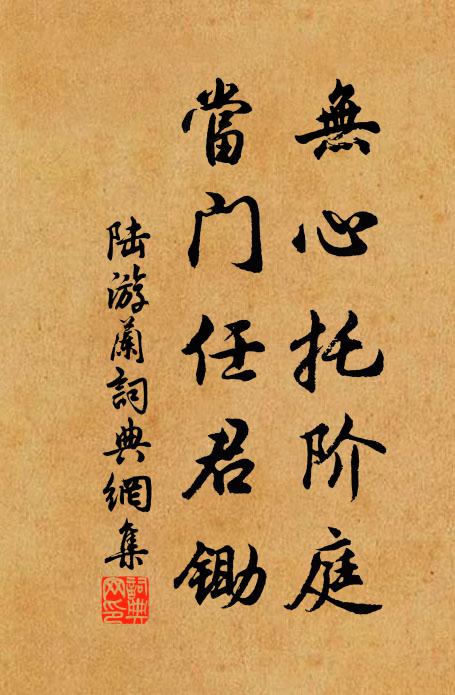 無心托阶庭
當门任君锄
陆游蘭詞典網集
詞典网印